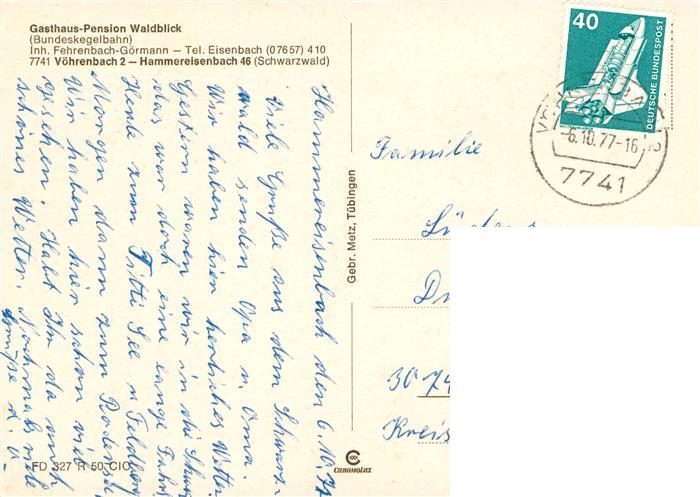 Gasthaus-Pension Waldblick
(Bundeskegelbahn)
Inh. Fehrenbach-Görmann — Tel. Eisenbach (07657) 410
7741 Vöhrenbach 2 — Hammereisenbach 46 (Schwarzwald)
Hammereisenbach den 6.10.77
Viele Grüße aus dem Schwarz-
wald senden Opa u. Oma.
Wir haben hier herliches Wetter
Gestern waren wir in die
das war doch eine lange Fahrt
Heute zum Titti See u Feldberg
Morgen dann zum Bodensee
Wir haben hier schon viel
gesehen. Habt Ihr da auch
schönes Wetter. Nochmals viele
Grüße d. O.
FD 327 R 50 CIO
Gebr. Metz, Tübingen
CHROMOLUX
40
DEUTSCHE BUNDESPOST
-6.10.77-16
7741
Familie
30 74
Kreis